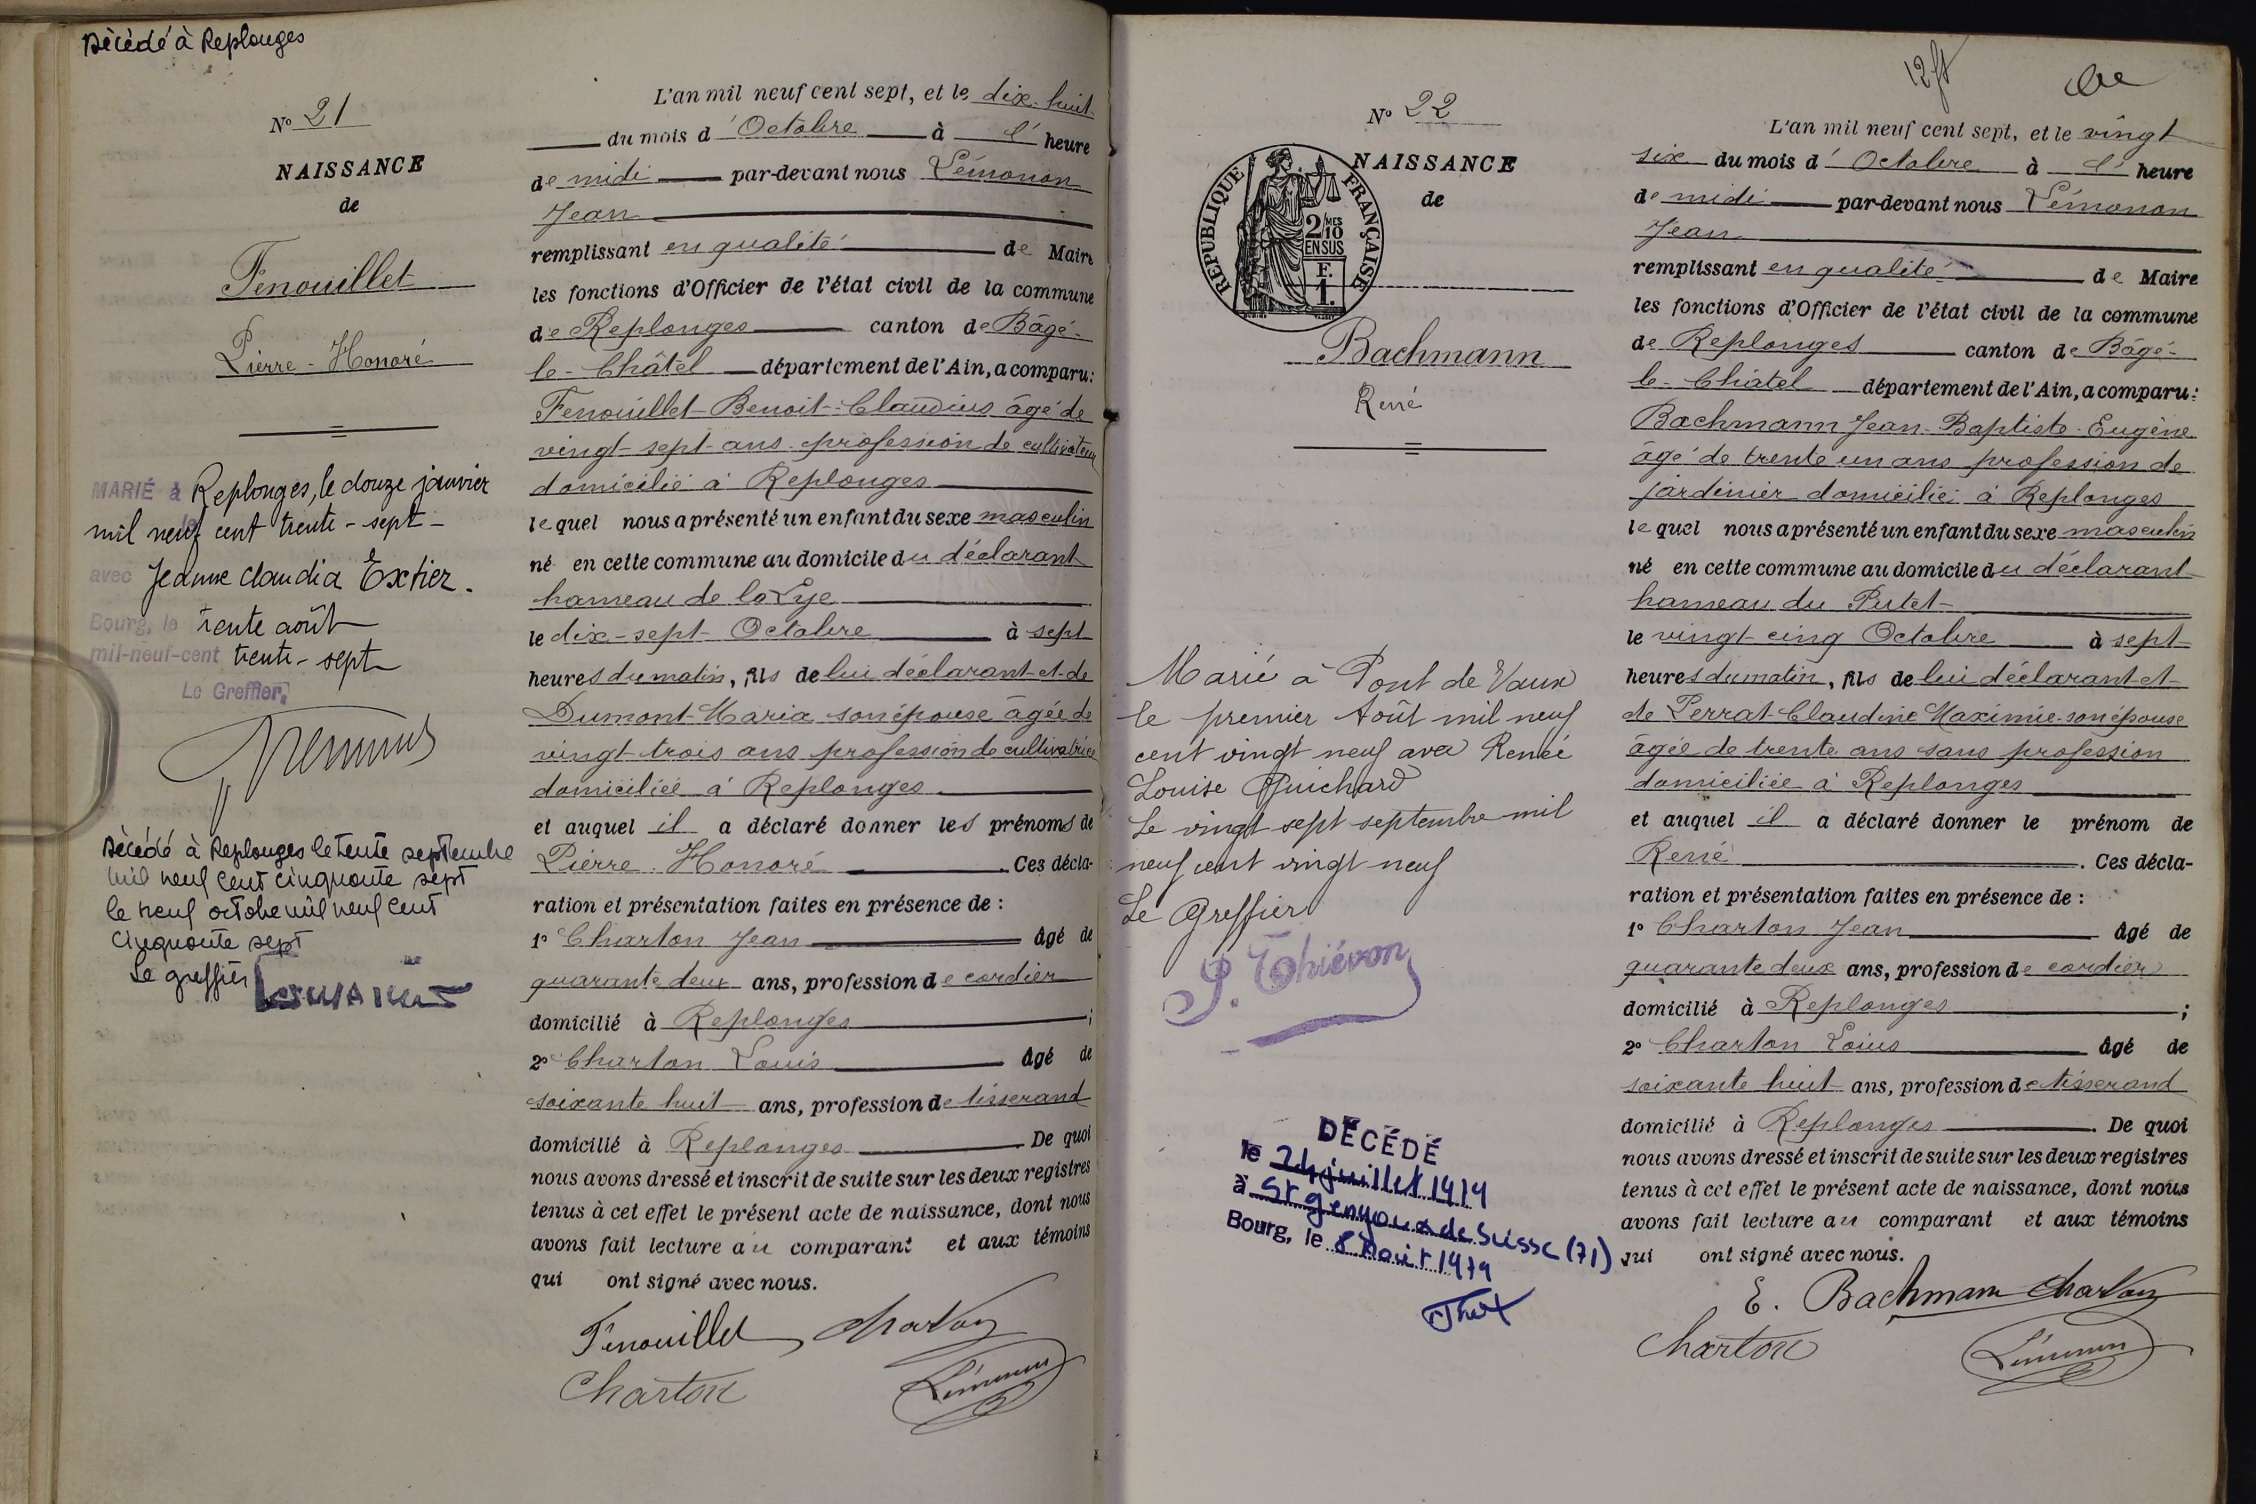 Décédé à Replonges
N° 21
NAISSANCE
de
Fenouillet
Pierre-Honoré
MARIÉ à Replonges, le douze janvier
mil neuf cent trente-sept-
avec Jeanne Claudia Extier.
Bourg, le trente août
mil-neuf-cent trente-sept
Le Greffier,
Décédé à Replonges le trente septembre
mil neuf cent cinquante sept
le neuf octobre mil neuf cent
cinquante sept
Le greffier
L'an mil neuf cent sept, et le dix-huit
du mois d'Octobre à l'heure
de midi par-devant nous Lémonon
Jean
remplissant en qualité de Maire
les fonctions d'Officier de l'état civil de la commune
de Replonges canton de Bâgé-
le-Châtel département de l'Ain, a comparu:
Fenouillet Benoit-Claudius âgé de
vingt-sept ans profession de cultivateur
domicilié à Replonges
lequel nous a présenté un enfant du sexe masculin
né en cette commune au domicile du déclarant
hameau de la Lye
le dix-sept Octobre à sept
heures du matin, fils de lui déclarant et de
Dumont Maria son épouse âgée de
vingt trois ans profession de cultivatrice
domiciliée à Replonges
et auquel il a déclaré donner les prénoms de
Pierre Honoré. Ces décla-
ration et présentation faites en présence de :
1° Charton Jean âgé de
quarante deux ans, profession de cordier
domicilié à Replonges;
2° Charton Louis âgé de
soixante huit ans, profession de tisserand
domicilié à Replonges. De quoi
nous avons dressé et inscrit de suite sur les deux registres
tenus à cet effet le présent acte de naissance, dont nous
avons fait lecture au comparant et aux témoins
qui ont signé avec nous.
Fenouillet Charton
Charton Lémonon
N° 22
NAISSANCE
de
RÉPUBLIQUE FRANÇAISE
2/10 MES
EN SUS
F.
1.
Bachmann
René
Marié à Pont de Vaux
le premier Août mil neuf
cent vingt neuf avec Renée
Louise Guichard
Le vingt sept septembre mil
neuf cent vingt neuf
Le Greffier
P. Thiévon
DÉCÉDÉ
le 24 juillet 1979
à St gengoux de Scissé (71)
Bourg, le 8 Août 1979
12 ft
L'an mil neuf cent sept, et le vingt
six du mois d'Octobre à l'heure
de midi par-devant nous Lémonon
Jean
remplissant en qualité de Maire
les fonctions d'Officier de l'état civil de la commune
de Replonges canton de Bâgé-
le-Châtel département de l'Ain, a comparu:
Bachmann Jean-Baptiste-Eugène
âgé de trente un ans profession de
jardinier domicilié à Replonges
lequel nous a présenté un enfant du sexe masculin
né en cette commune au domicile du déclarant
hameau du Putet
le vingt cinq Octobre à sept
heures du matin, fils de lui déclarant et
de Perrat Claudine Maximie son épouse
âgée de trente ans sans profession
domiciliée à Replonges
et auquel il a déclaré donner le prénom de
René. Ces décla-
ration et présentation faites en présence de :
1° Charton Jean âgé de
quarante deux ans, profession de cordier
domicilié à Replonges;
2° Charton Loius âgé de
soixante huit ans, profession de tisserand
domicilié à Replonges. De quoi
nous avons dressé et inscrit de suite sur les deux registres
tenus à cet effet le présent acte de naissance, dont nous
avons fait lecture au comparant et aux témoins
qui ont signé avec nous.
E. Bachmann Charton
Charton Lémonon